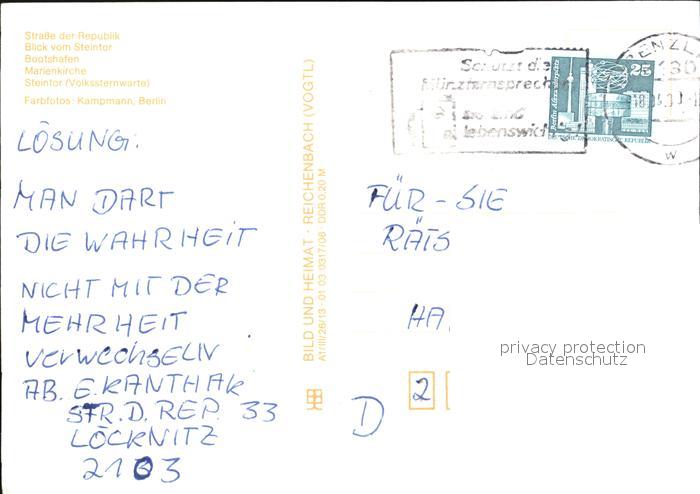 Straße der Republik
Blick vom Steintor
Bootshafen
Marienkirche
Steintor (Volkssternwarte)
Farbfotos: Kampmann, Berlin
LÖSUNG:
MAN DARF
DIE WAHRHEIT
NICHT MIT DER
MEHRHEIT
VERWECHSELN
AB. E. KANTHAK
STR. D. REP. 33
LÖCKNITZ
2103
BILD UND HEIMAT · REICHENBACH (VOGTL)
A1/III/26/13 · 01 03 0317/06 · DDR 0,20 M
Schützt die
Münzfernsprecher
sie sind
lebenswich
25
Berlin, Alexanderplatz
DEMOKRATISCHE REPUBLIK
RENZL
W
FÜR-SIE
RÄTS
HA
privacy protection
Datenschutz
D
2